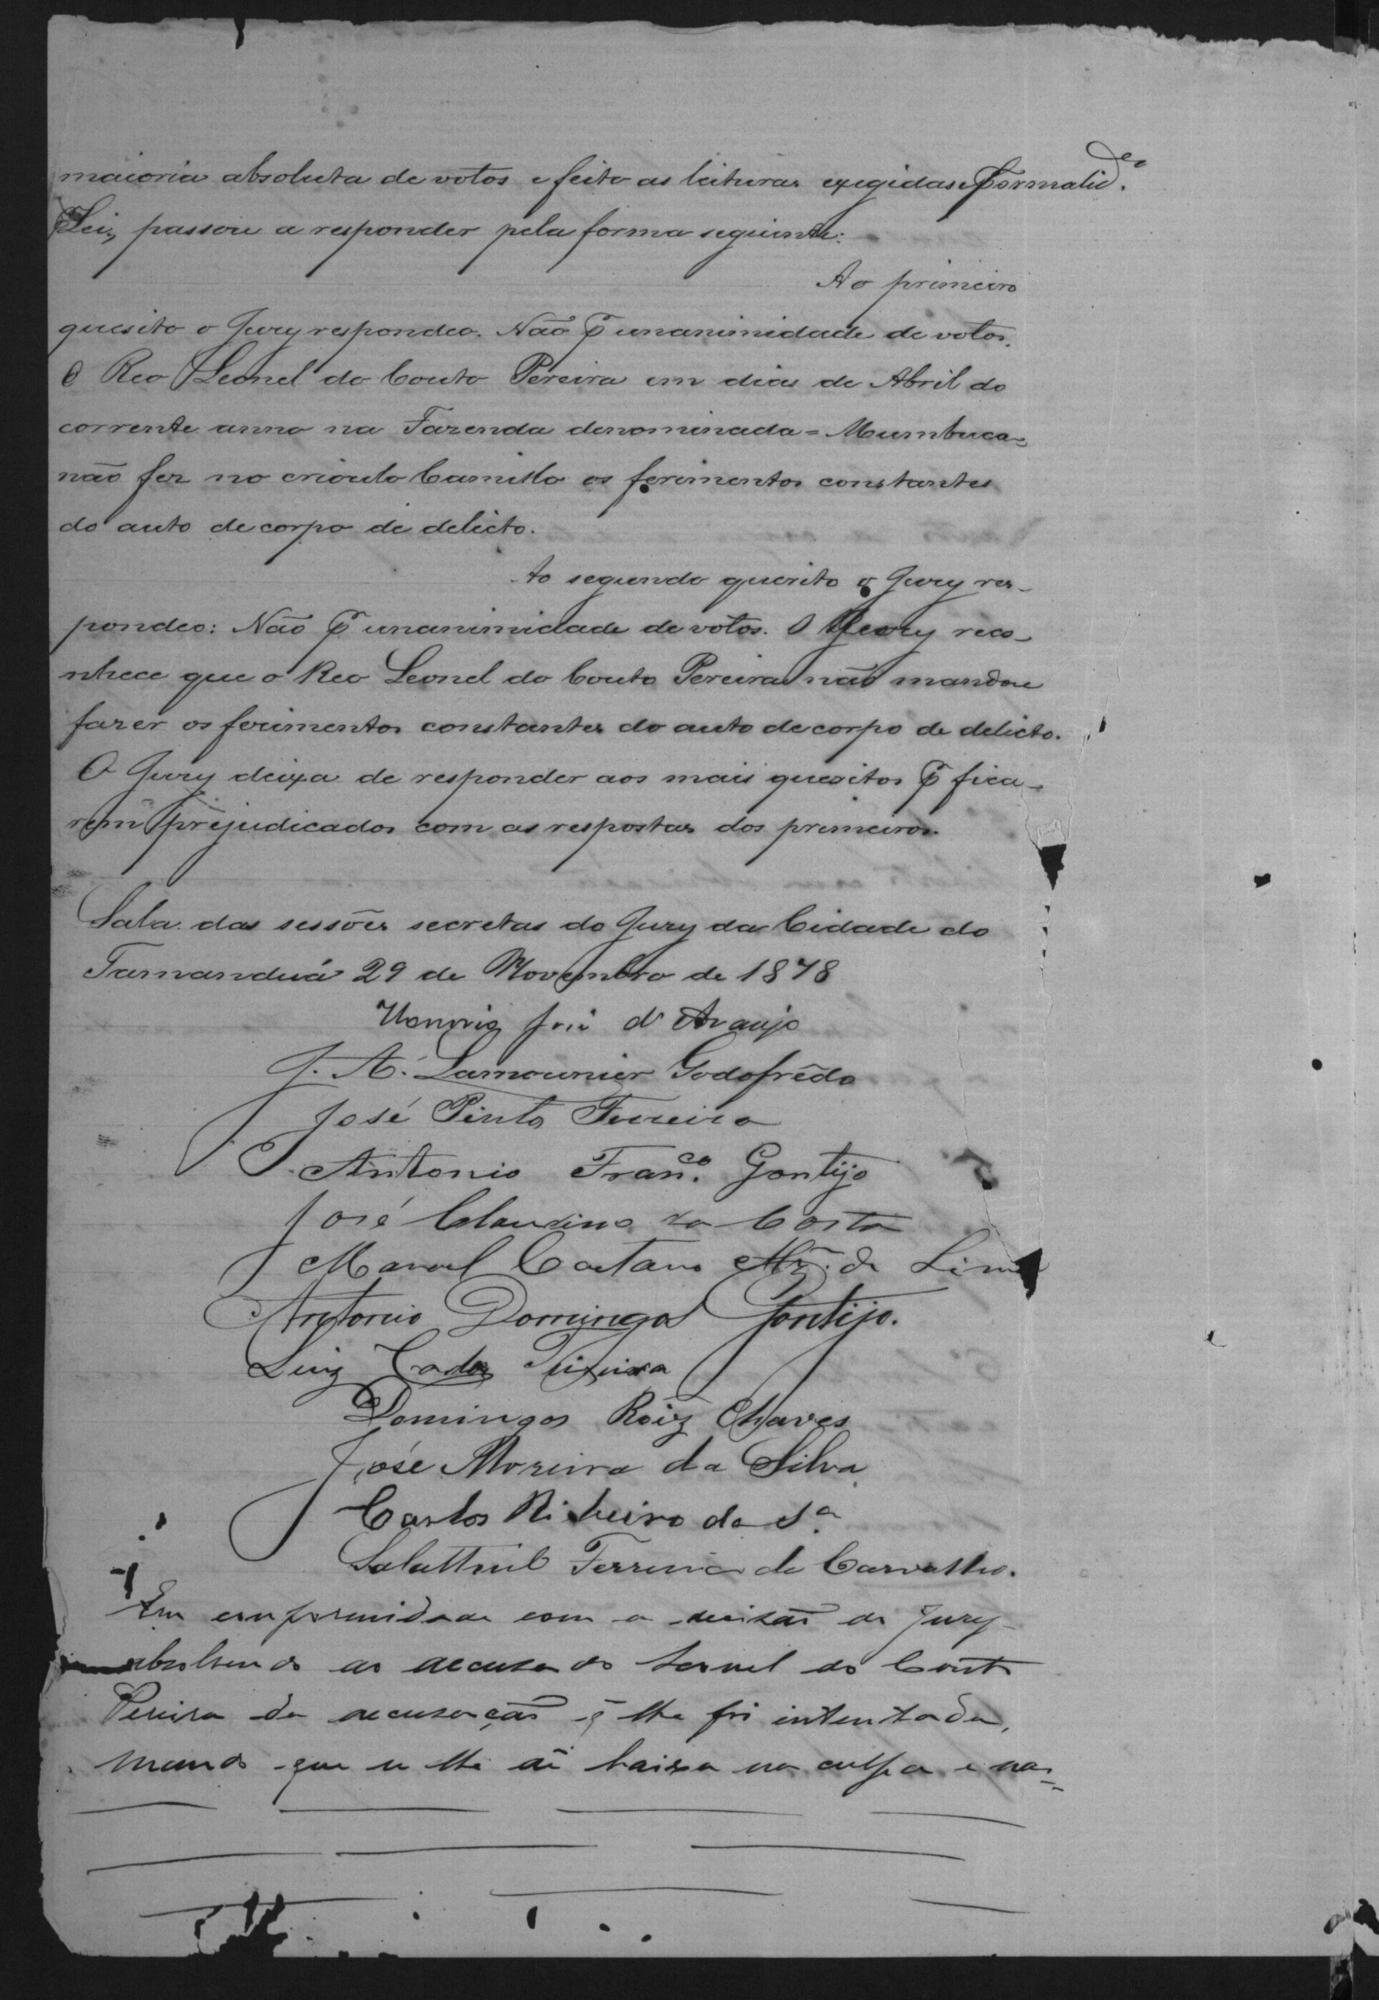 maioria absoluta de votos e feito as leituras exegidas e formalid.es
Lei, passou a responder pela forma seguinte:
Ao primeiro
quesito o Jury respondeo. Não p unanimidade de votos.
O Reo Leonel do Couto Pereira em dias de Abril do
corrente anno na Fazenda denominada = Mumbuca =
não fez no crioulo Camillo os ferimentos constantes
do auto de corpo de delicto.
Ao segundo quesito o Jury res-
pondeo: Não p unanimidade de votos. O Jury reco-
nhece que o Reo Leonel do Couto Pereira não mandou
fazer os ferimentos constantes do auto de corpo de delicto.
O Jury deixa de responder aos mais quesitos p fica-
rem prejudicados com as respostas dos primeiros.
Sala das sessões secretas do Jury da Cidade do
Tamanduá 29 de Novembro de 1878
Honorio José d'Araujo
J. A. Lamounier Godofrêdo
José Pinto Ferreira
Antonio Fran.co Gontijo
José Claudino da Costa
Manoel Caetano de Lima
Antonio Domingos Gontijo.
Luiz Carlos Teixeira
Domingos Roiz Chaves
José Moreira da Silva
Carlos Ribeiro da S.a
Salatthiel Ferreira de Carvalho.
Em conformidade com a decisão do Jury
absolvendo ao accusado Leonel do Couto
Pereira da accusação q̃ lhe foi intentada,
mando que se lhe dê baixa na culpa e na-